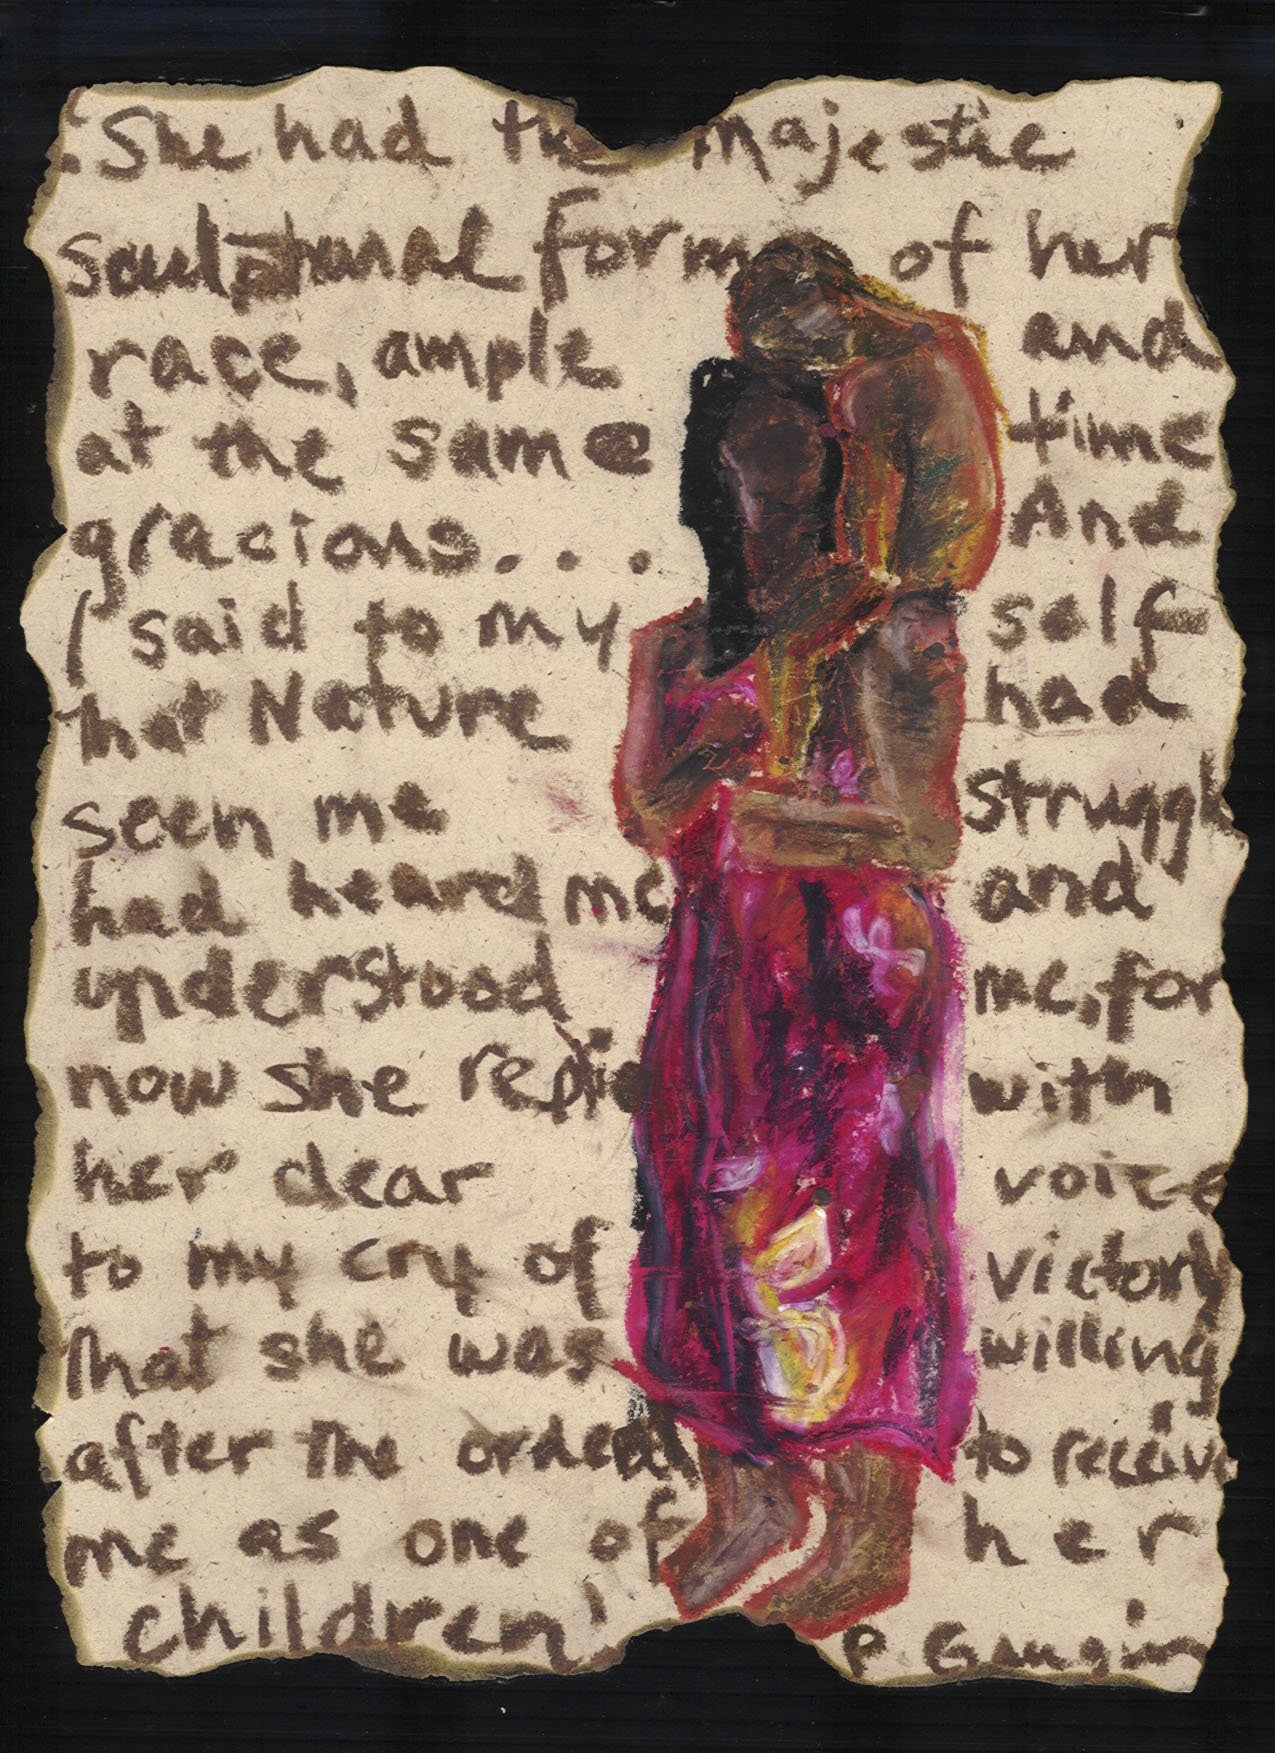 'She had the majestic
sculptural form of her
race, ample and
at the same time
gracious... And
I said to my self
that Nature had
seen me struggle
had heard me and
understood me, for
now she replie with
her dear voice
to my cry of victory
that she was willing
after the ordeal to receive
me as one of her
children'
P. Gaugin